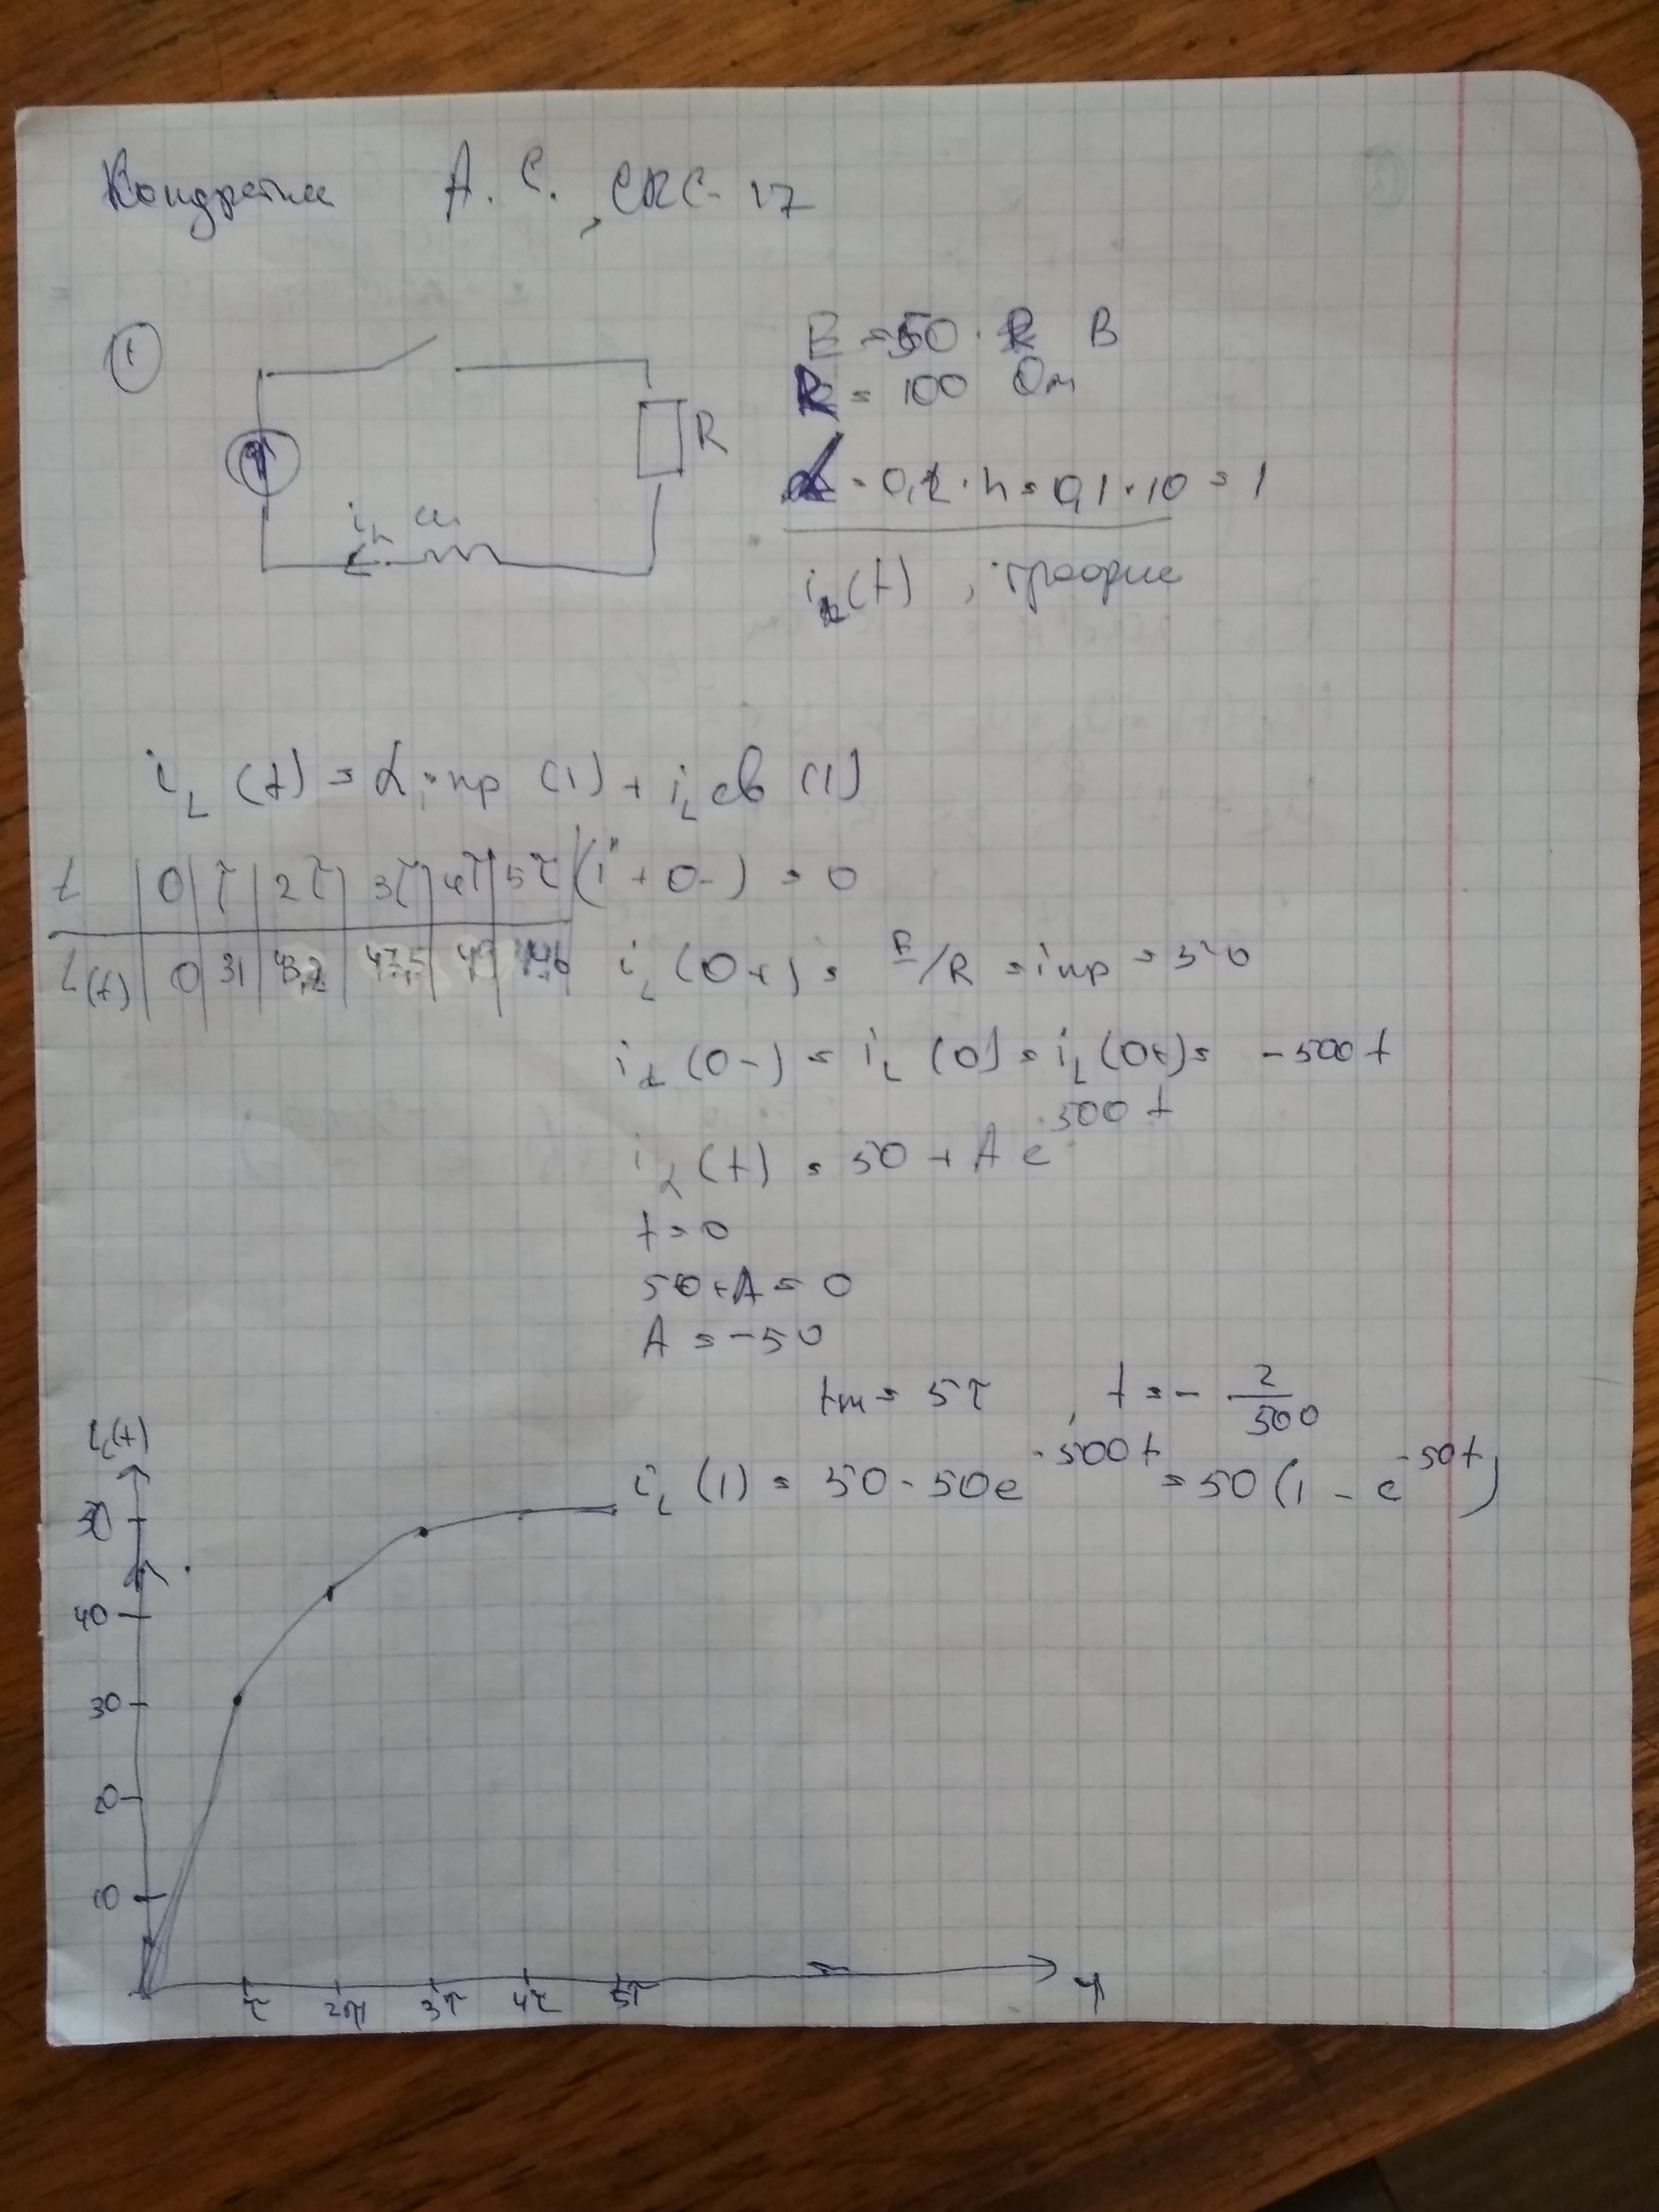 А. С. , СКС-17
1
E = 50 · R В
R = 100 Ом
R
L = 0,1 · n = 0,1 · 10 = 1
i_L
i_L(t) , график
i_L (t) = i пр (1) + i_L св (1)
t | 0 | τ | 2τ | 3τ | 4τ | 5τ
(i + 0-) = 0
i(t) | 0 | 31 | 43,2 | 47,5 | 49
i_L (0+) = E/R = i пр = 50
i_L (0-) = i_L (0) = i_L (0+) = -500 t
i_L (t) = 50 + A e^500 t
t = 0
50 + A = 0
A = -50
tм = 5τ , t = - 2/500
i_L(t)
i_L (1) = 50 - 50e^-500 t = 50 (1 - e^-50t)
50
40
30
20
10
τ 2τ 3τ 4τ 5τ